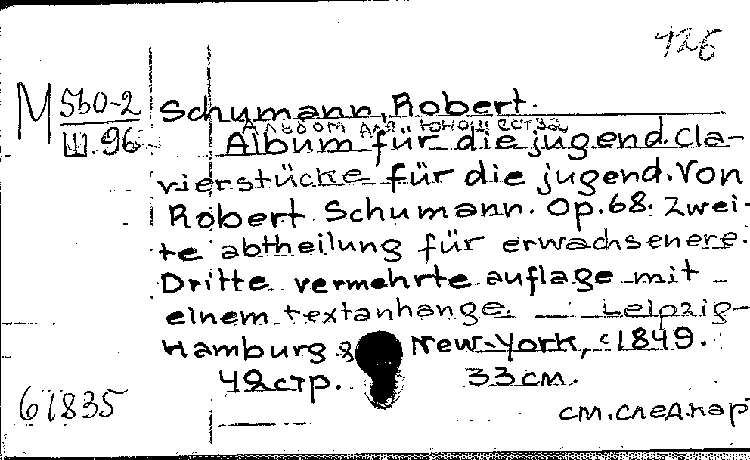 126
М 560-2
Ш.96
Schumann, Robert.
Альбом для юношества
Album für die jugend. Cla-
vierstücke für die jugend. Von
Robert Schumann. Op. 68. Zwei-
te abtheilung für erwachsenere.
Dritte vermehrte auflage mit
einem textanhange. — Leipzig-
Hamburg & New-York, c1849.
42 стр. 33 см.
61835
см. след. кар